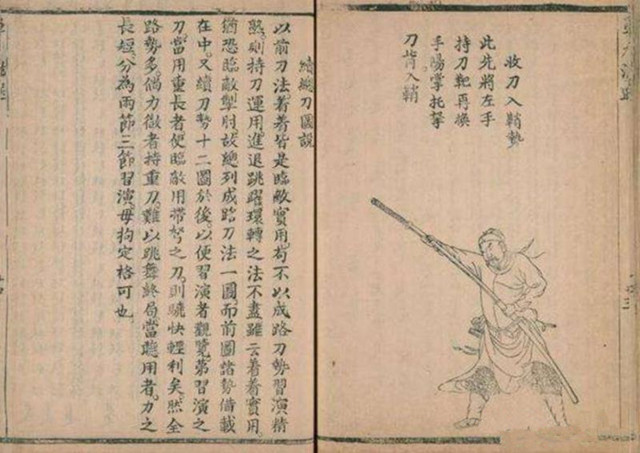 收刀入鞘勢
此先將左手
持刀靶再換
手陽掌托拏
刀背入鞘
續總刀圖說
以前刀法着着皆是臨敵實用苟不以成路刀勢習演精
熟則持刀運用進退跳躍環轉之法不盡雖云着着實用
猶恐臨敵掣肘故總列成路刀法一圖而前圖諸勢備載
在中又續刀勢十二圖於後以便習演者觀覽第習演之
刀當用重長者便臨敵用帶弩之刀則驍快輕利矣然全
路勢多倘力微者持重刀難以跳舞終局當聽用者力之
長短分為兩節三節習演毋拘定格可也